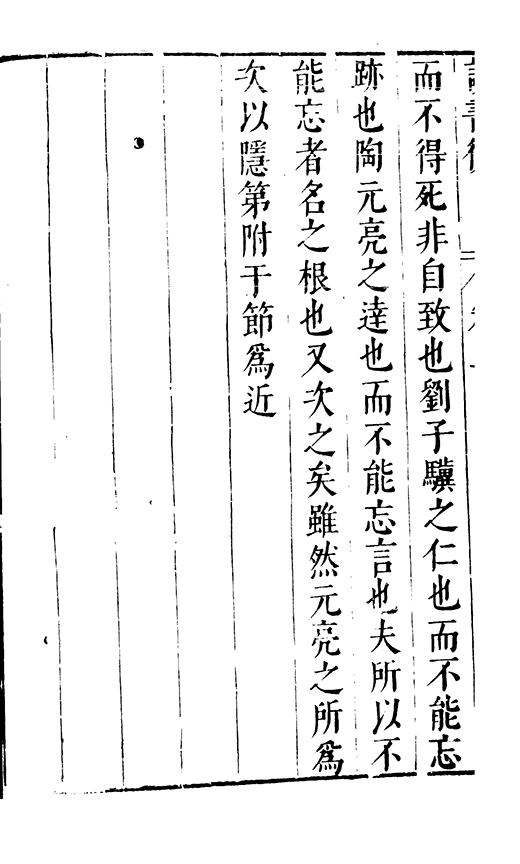 讀書後
而不得死非自致也劉子驥之仁也而不能忘
跡也陶元亮之達也而不能忘言也夫所以不
能忘者名之根也又次之矣雖然元亮之所爲
次以隱第附于節爲近